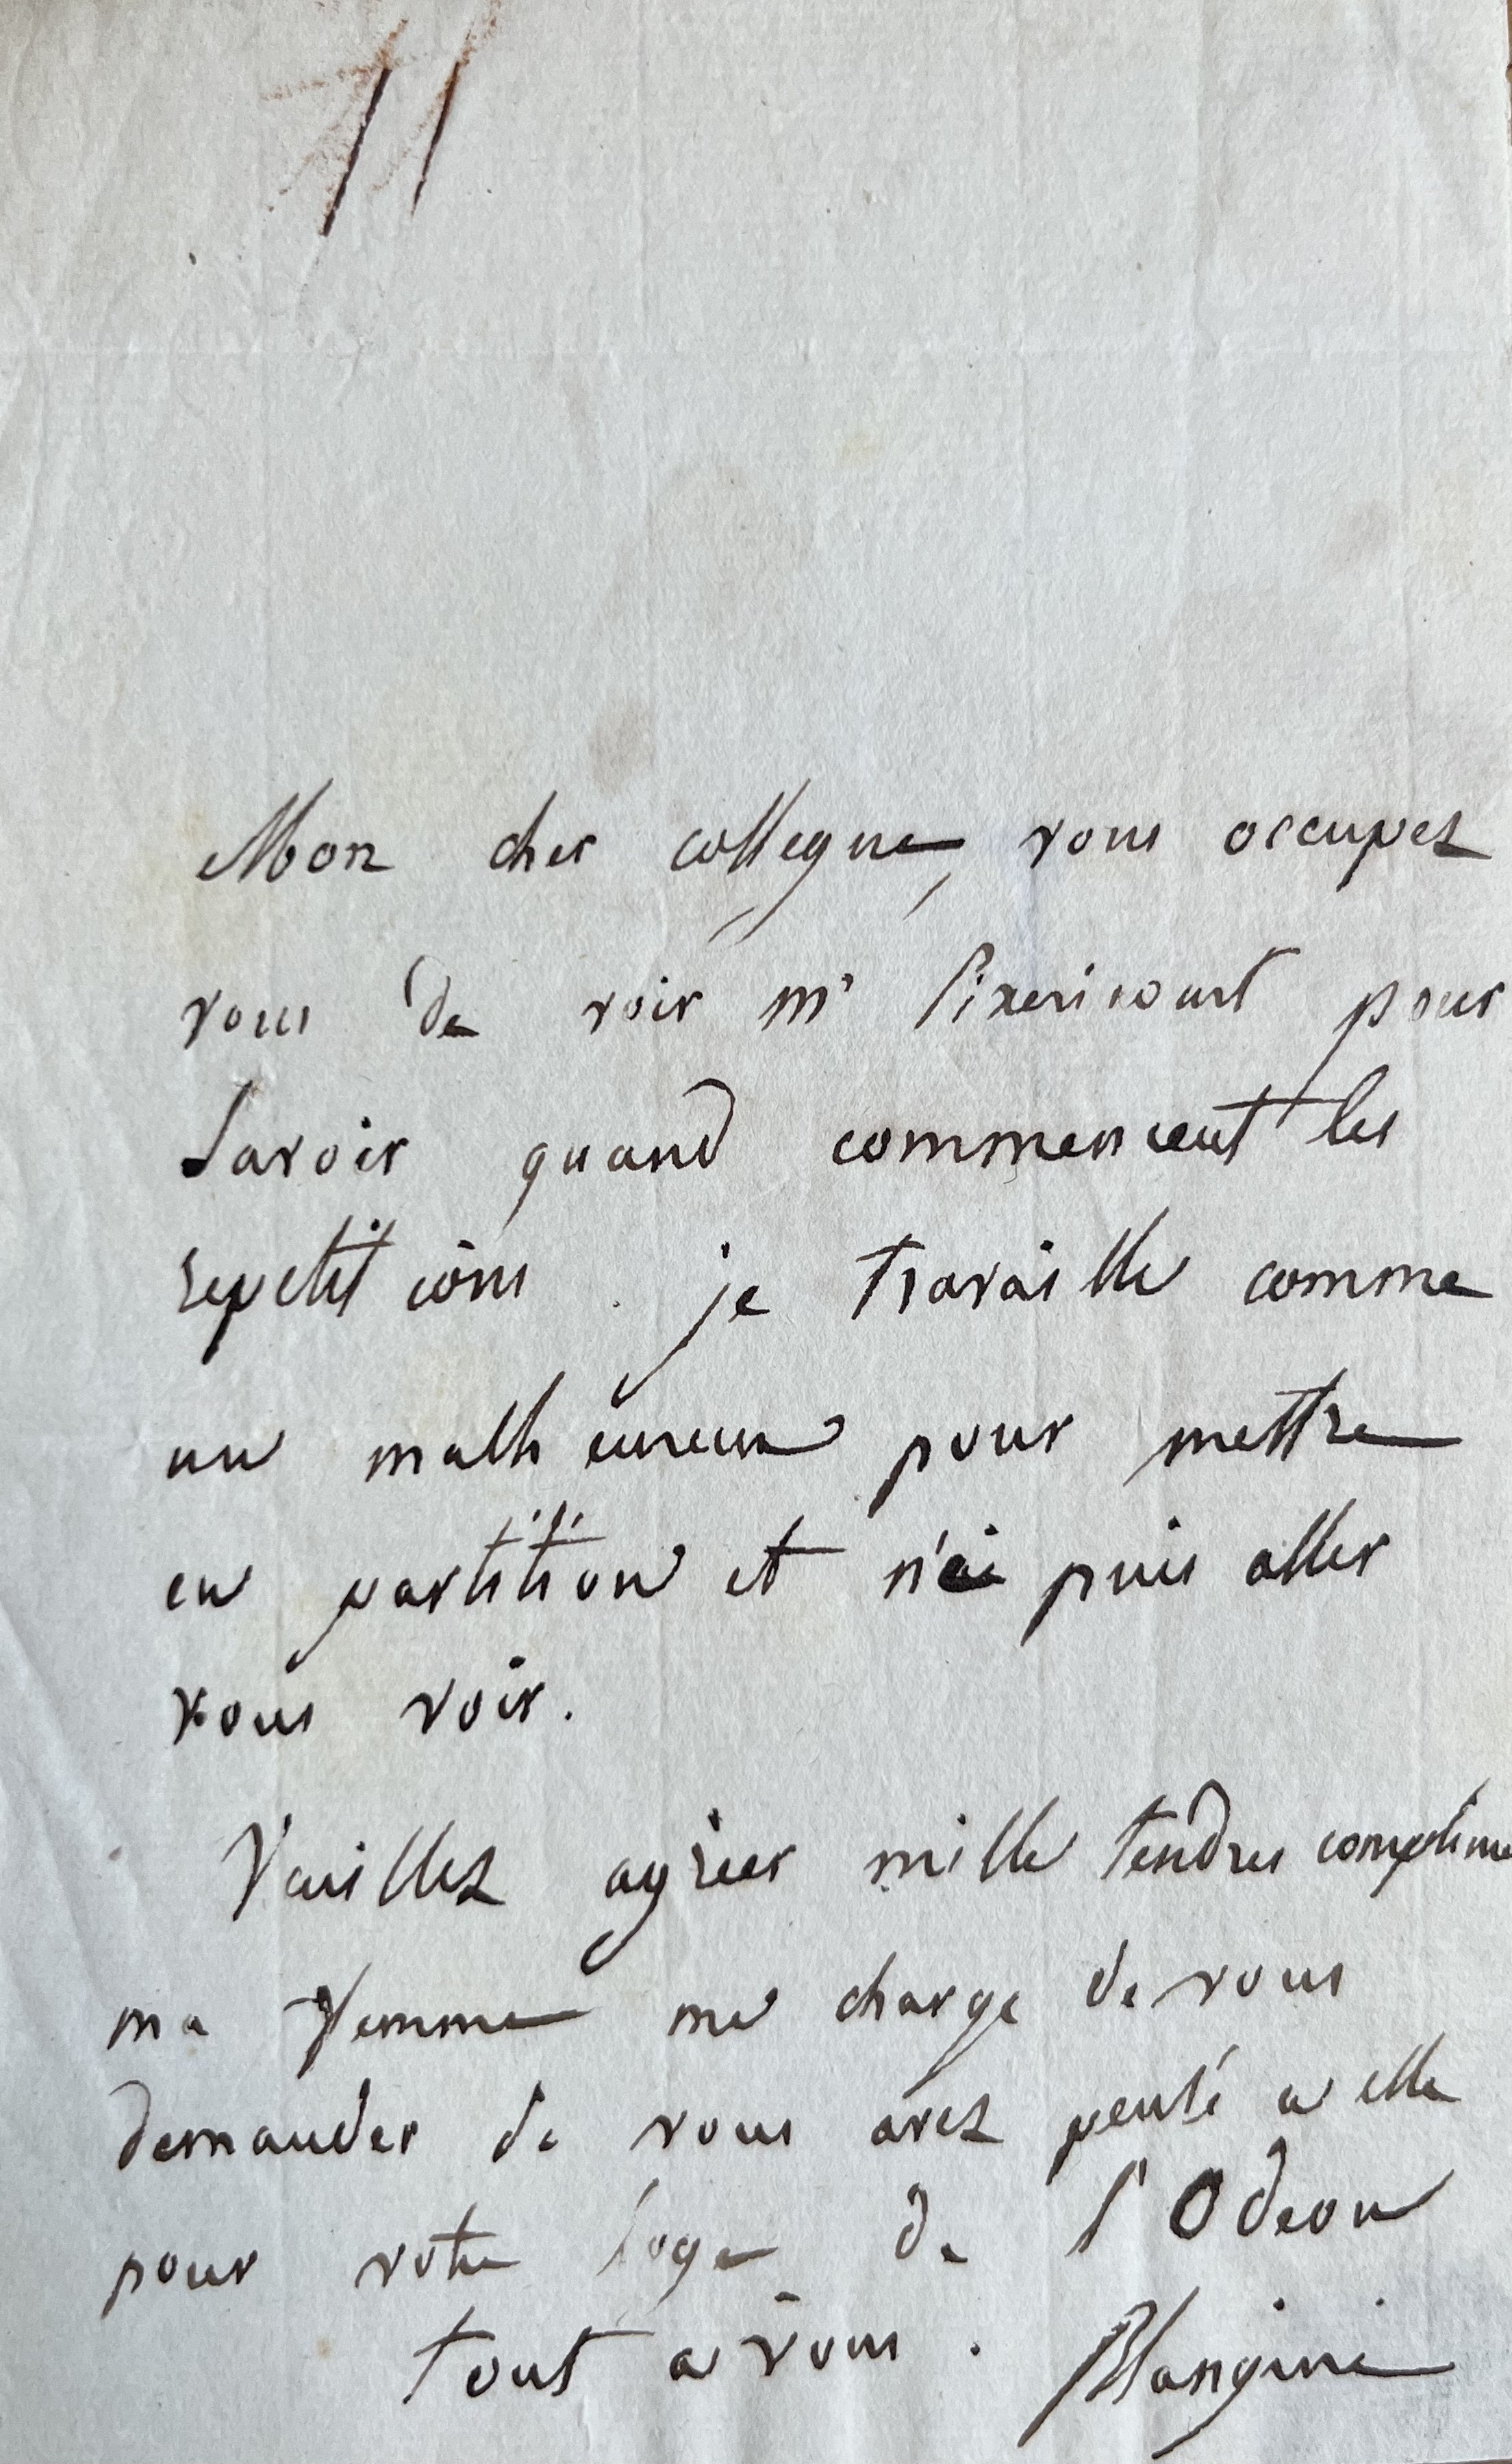 Mon cher collegue, vous occupez
vous de voir mr Pixericourt pour
Savoir quand commencent les
repetitions. je travaille comme
un malheureux pour mettre
en partition et n'ai puis aller
vous voir.
Veuillez agréer mille tendres complime
ma femme me charge de vous
demander de vous avez pensé a elle
pour votre loge de l'Odeon
tout a vous. Blangini